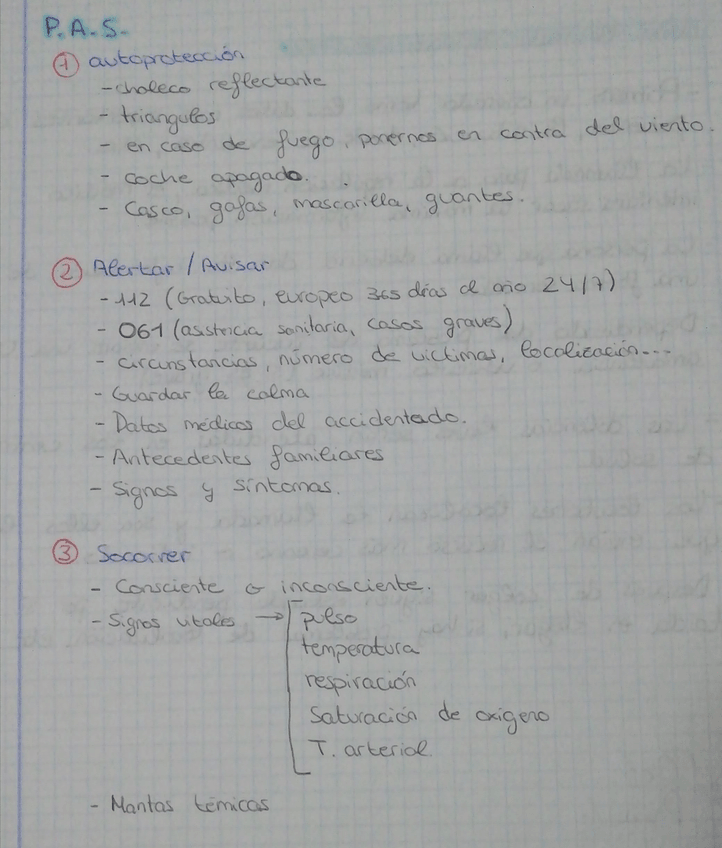 P.A.S.
1 autoprotección
- choleco reflectante
- triangulos
- en caso de fuego, ponernos en contra del viento.
- coche apagado.
- Casco, gafas, mascarilla, guantes.
2 Alertar / Avisar
- 112 (Gratuito, europeo 365 días al año 24/7)
- 061 (asistncia sanitaria, casos graves)
- circunstancias, número de victimas, localización...
- Guardar la calma
- Datos médicos del accidentado.
- Antecedentes familiares
- Signos y síntomas.
3 Socorrer
- Consciente o inconsciente.
- Signos vitales → pulso
temperatura
respiración
Saturación de oxígeno
T. arterial
- Mantas térmicas